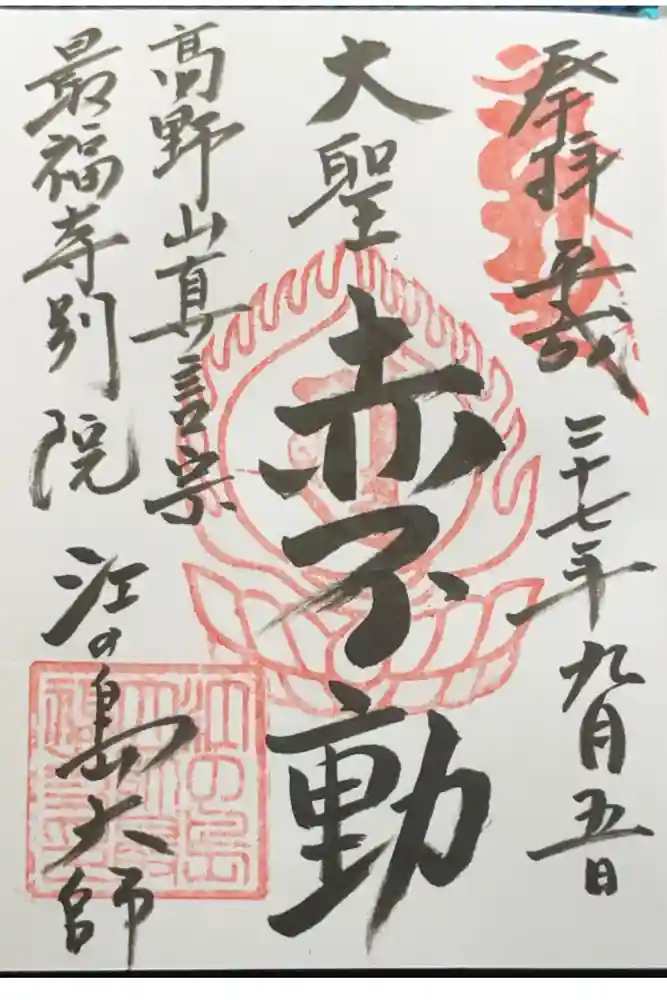 奉拝 平成二十七年九月五日
大聖
赤不動
高野山真言宗
最福寺別院
江の島大師